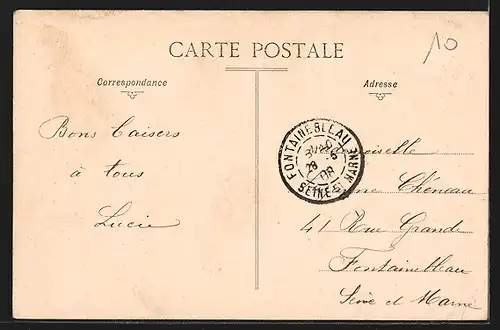 CARTE POSTALE
10
Correspondance
Adresse
Bons Baisers
à tous
Lucie
FONTAINEBLEAU
28 -6
08
SEINE & MARNE
Chéneau
41 Rue Grande
Fontainebleau
Seine et Marne